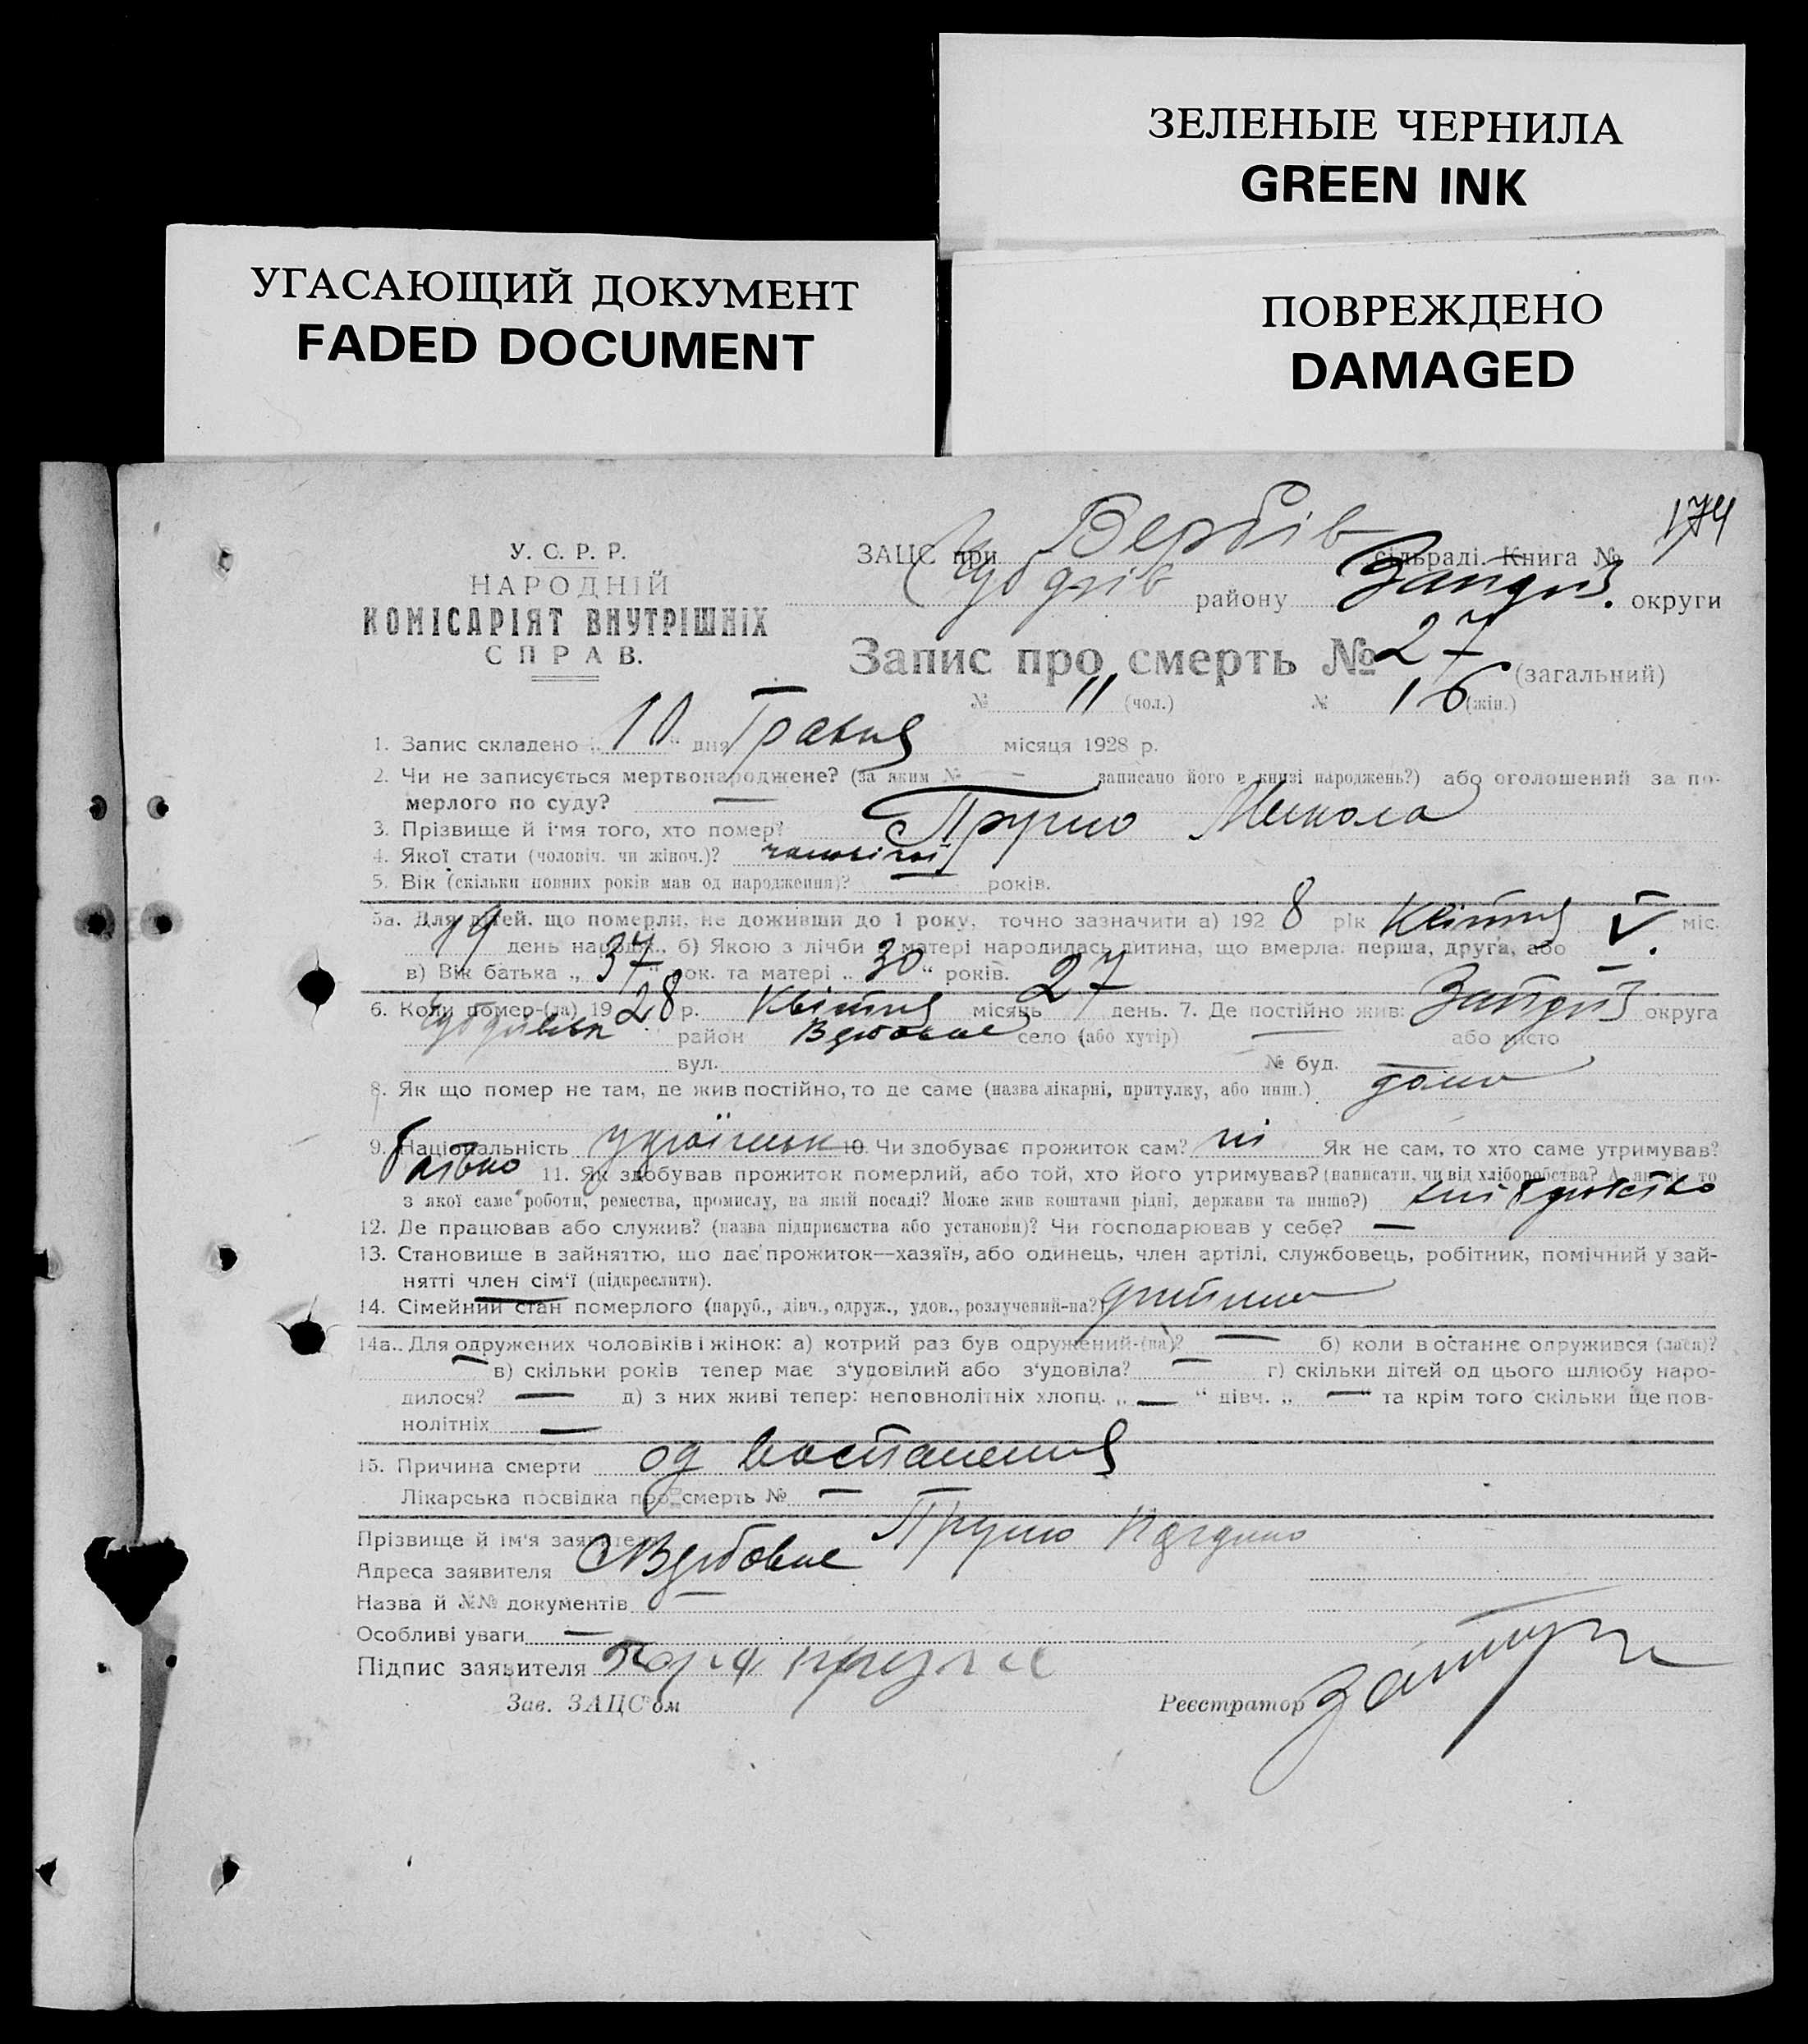 ЗЕЛЕНЫЕ ЧЕРНИЛА
GREEN INK
УГАСАЮЩИЙ ДОКУМЕНТ
FADED DOCUMENT
ПОВРЕЖДЕНО
DAMAGED
174
У. С. Р. Р.
НАРОДНІЙ
КОМІСАРІЯТ ВНУТРІШНІХ
СПРАВ.
ЗАЦС при Вербів сільраді. Книга №
району округи
Запис про смерть № 27 (загальний)
№ 11 (чол.) № 16 (жін.)
1. Запис складено „ 10 “ дня Травня місяця 1928 р.
2. Чи не записується мертвонароджене? (за яким № — записано його в книзі народжень?) або оголошений за по-
мерлого по суду? —
3. Прізвище й ім'я того, хто помер? Микола
4. Якої стати (чоловіч. чи жіноч.)? чоловічої
5. Вік (скільки повних років мав од народження)? — років.
5а. Для дітей, що померли, не доживши до 1 року, точно зазначити а) 192 8 рік Квітня міс.
19 день народж., б) Якою з лічби у матері народилась дитина, що вмерла: перша, друга, або V.
в) Вік батька „ 37 “ рок. та матері „ 30 “ років.
6. Коли помер-(ла) 19 28 р. Квітня місяць 27 день. 7. Де постійно жив: округа
район Вербовое село (або хутір) — або місто
вул. № буд.
8. Як що помер не там, де жив постійно, то де саме (назва лікарні, притулку, або инш.) дома
9. Національність 10. Чи здобуває прожиток сам? ні Як не сам, то хто саме утримував?
батько 11. Як здобував прожиток померлий, або той, хто його утримував? (написати, чи від хліборобства? А як ні, то
з якої саме роботи, ремества, промислу, на якій посаді? Може жив коштами рідні, держави та инше?)
12. Де працював або служив? (назва підприємства або установи)? Чи господарював у себе? —
13. Становище в зайняттю, що дає прожиток—хазяїн, або одинець, член артілі, службовець, робітник, помічний у зай-
нятті член сім'ї (підкреслити).
14. Сімейний стан померлого (паруб., дівч., одруж., удов., розлучений-на?) дитина
14а. Для одружених чоловіків і жінок: а) котрий раз був одружений-(на)? — б) коли в останнє одружився (лася)?
— в) скільки років тепер має з'удовілий або з'удовіла? — г) скільки дітей од цього шлюбу наро-
дилося? — д) з них живі тепер: неповнолітніх хлопц. „ — “ дівч. „ — “ та крім того скільки ще пов-
нолітніх —
15. Причина смерти од воспаления
Лікарська посвідка про смерть № —
Прізвище й ім'я заявителя
Адреса заявителя с Вербовое
Назва й №№ документів —
Особливі уваги —
Підпис заявителя
Зав. ЗАЦС'ом Реєстратор